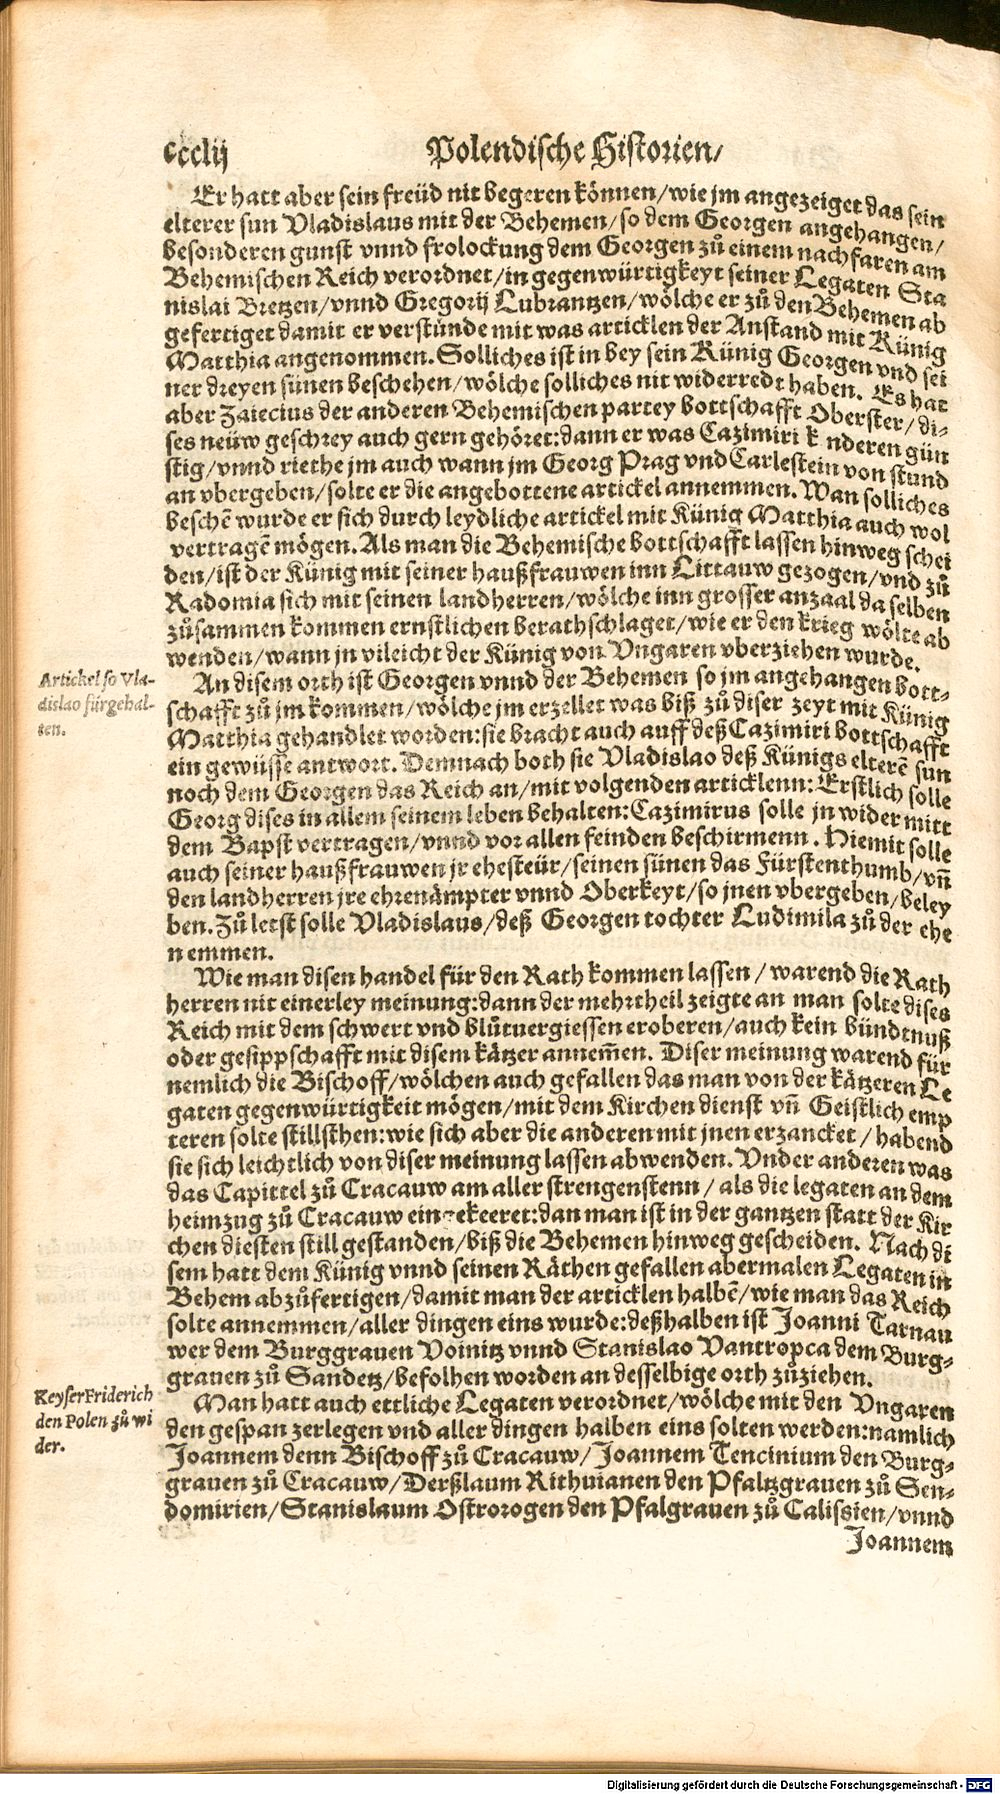 ccclij
Polendische Historien/
Er hatt aber sein freüd nit begeren können/wie jm angezeiget das sein
elterer sun Vladislaus mit der Behemen/so dem Georgen angehangen/
besonderen gunst vnnd frolockung dem Georgen zů einem nachfaren am
Behemischen Reich verordnet/in gegenwürtigkeyt seiner Legaten Sta
nislai Bretzen/vnnd Gregorij Lubrantzen/wölche er zů den Behemen ab
gefertiget damit er verstünde mit was articklen der Anstand mit Künig
Matthia angenommen. Solliches ist in bey sein Künig Georgen vnd sei
ner dreyen sünen beschehen/wölche solliches nit widerredt haben. Es hat
aber Zaiecius der anderen Behemischen partey bottschafft Oberster/di-
ses neüw geschrey auch gern gehöret:dann er was Cazimiri k nderen gün
stig/vnnd riethe jm auch wann jm Georg Prag vnd Carlestein von stund
an vbergeben/solte er die angebottene artickel annemmen. Wan solliches
beschẽ wurde er sich durch leydliche artickel mit Künig Matthia auch wol
vertragẽ mögen. Als man die Behemische bottschafft lassen hinweg schei
den/ist der Künig mit seiner haußfrauwen inn Littauw gezogen/vnd zů
Radomia sich mit seinen landherren/wölche inn grosser anzaal da selben
zůsammen kommen ernstlichen berathschlaget/wie er den krieg wölte ab
wenden/wann jn vileicht der Künig von Vngaren vberziehen wurde.
Artickel so Vla-
dislao fürgehal-
ten.
An disem orth ist Georgen vnnd der Behemen so jm angehangen bott-
schafft zů jm kommen/wölche jm erzellet was biß zů diser zeyt mit Künig
Matthia gehandlet worden:sie bracht auch auff deß Cazimiri bottschafft
ein gewüsse antwort. Demnach both sie Vladislao deß Künigs elterẽ sun
noch dem Georgen das Reich an/mit volgenden articklenn: Erstlich solle
Georg dises in allem seinem leben behalten:Cazimirus solle jn wider mitt
dem Bapst vertragen/vnnd vor allen feinden beschirmenn. Hiemit solle
auch seiner haußfrauwen jr ehesteür/seinen sünen das Fürstenthumb/vñ
den landherren jre ehrenämpter vnnd Oberkeyt/so jnen vbergeben/beley
ben. Zů letst solle Vladislaus/deß Georgen tochter Ludimila zů der ehe
nemmen.
Wie man disen handel für den Rath kommen lassen/warend die Rath
herren nit einerley meinung:dann der mehrtheil zeigte an man solte dises
Reich mit dem schwert vnd blůtuergiessen eroberen/auch kein bündtnuß
oder gesippschafft mit disem kätzer annem̃en. Diser meinung warend für
nemlich die Bischoff/wölchen auch gefallen das man von der kätzeren Le
gaten gegenwürtigkeit mögen/mit dem Kirchen dienst vñ Geistlich emp
teren solte stillsthen:wie sich aber die anderen mit jnen erzancket/habend
sie sich leichtlich von diser meinung lassen abwenden. Vnder anderen was
das Capittel zů Cracauw am aller strengenstenn/als die legaten an dem
heimzug zů Cracauw eingekeeret:dan man ist in der gantzen statt der Kir
chen diesten still gestanden/biß die Behemen hinweg gescheiden. Nach di
sem hatt dem Künig vnnd seinen Räthen gefallen abermalen Legaten in
Behem abzůfertigen/damit man der articklen halbẽ/wie man das Reich
solte annemmen/aller dingen eins wurde:deßhalben ist Joanni Tarnau
wer dem Burggrauen Voinitz vnnd Stanislao Vantropca dem Burg-
grauen zů Sandetz/befolhen worden an desselbige orth zůziehen.
Keyser Friderich
den Polen zů wi
der.
Man hatt auch ettliche Legaten verordnet/wölche mit den Vngaren
den gespan zerlegen vnd aller dingen halben eins solten werden:namlich
Joannem denn Bischoff zů Cracauw/Joannem Tencinium den Burg-
grauen zů Cracauw/Derßlaum Rithuianen den Pfaltzgrauen zů Sen-
domirien/Stanislaum Ostrozogen den Pfalgrauen zů Calissien/vnnd
Joannem
Digitalisierung gefördert durch die Deutsche Forschungsgemeinschaft - DFG